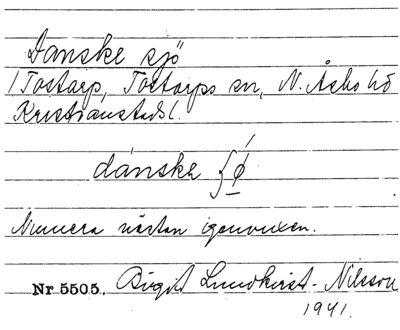 Danske sjö
i Tostarp, Tostarps sn, N. Åsbo hd
Kristianstads l.
dánske ʃǿ
Numera nästan igenvuxen.
Nr 5505. Birgit Lundkvist-Nilsson
1941.